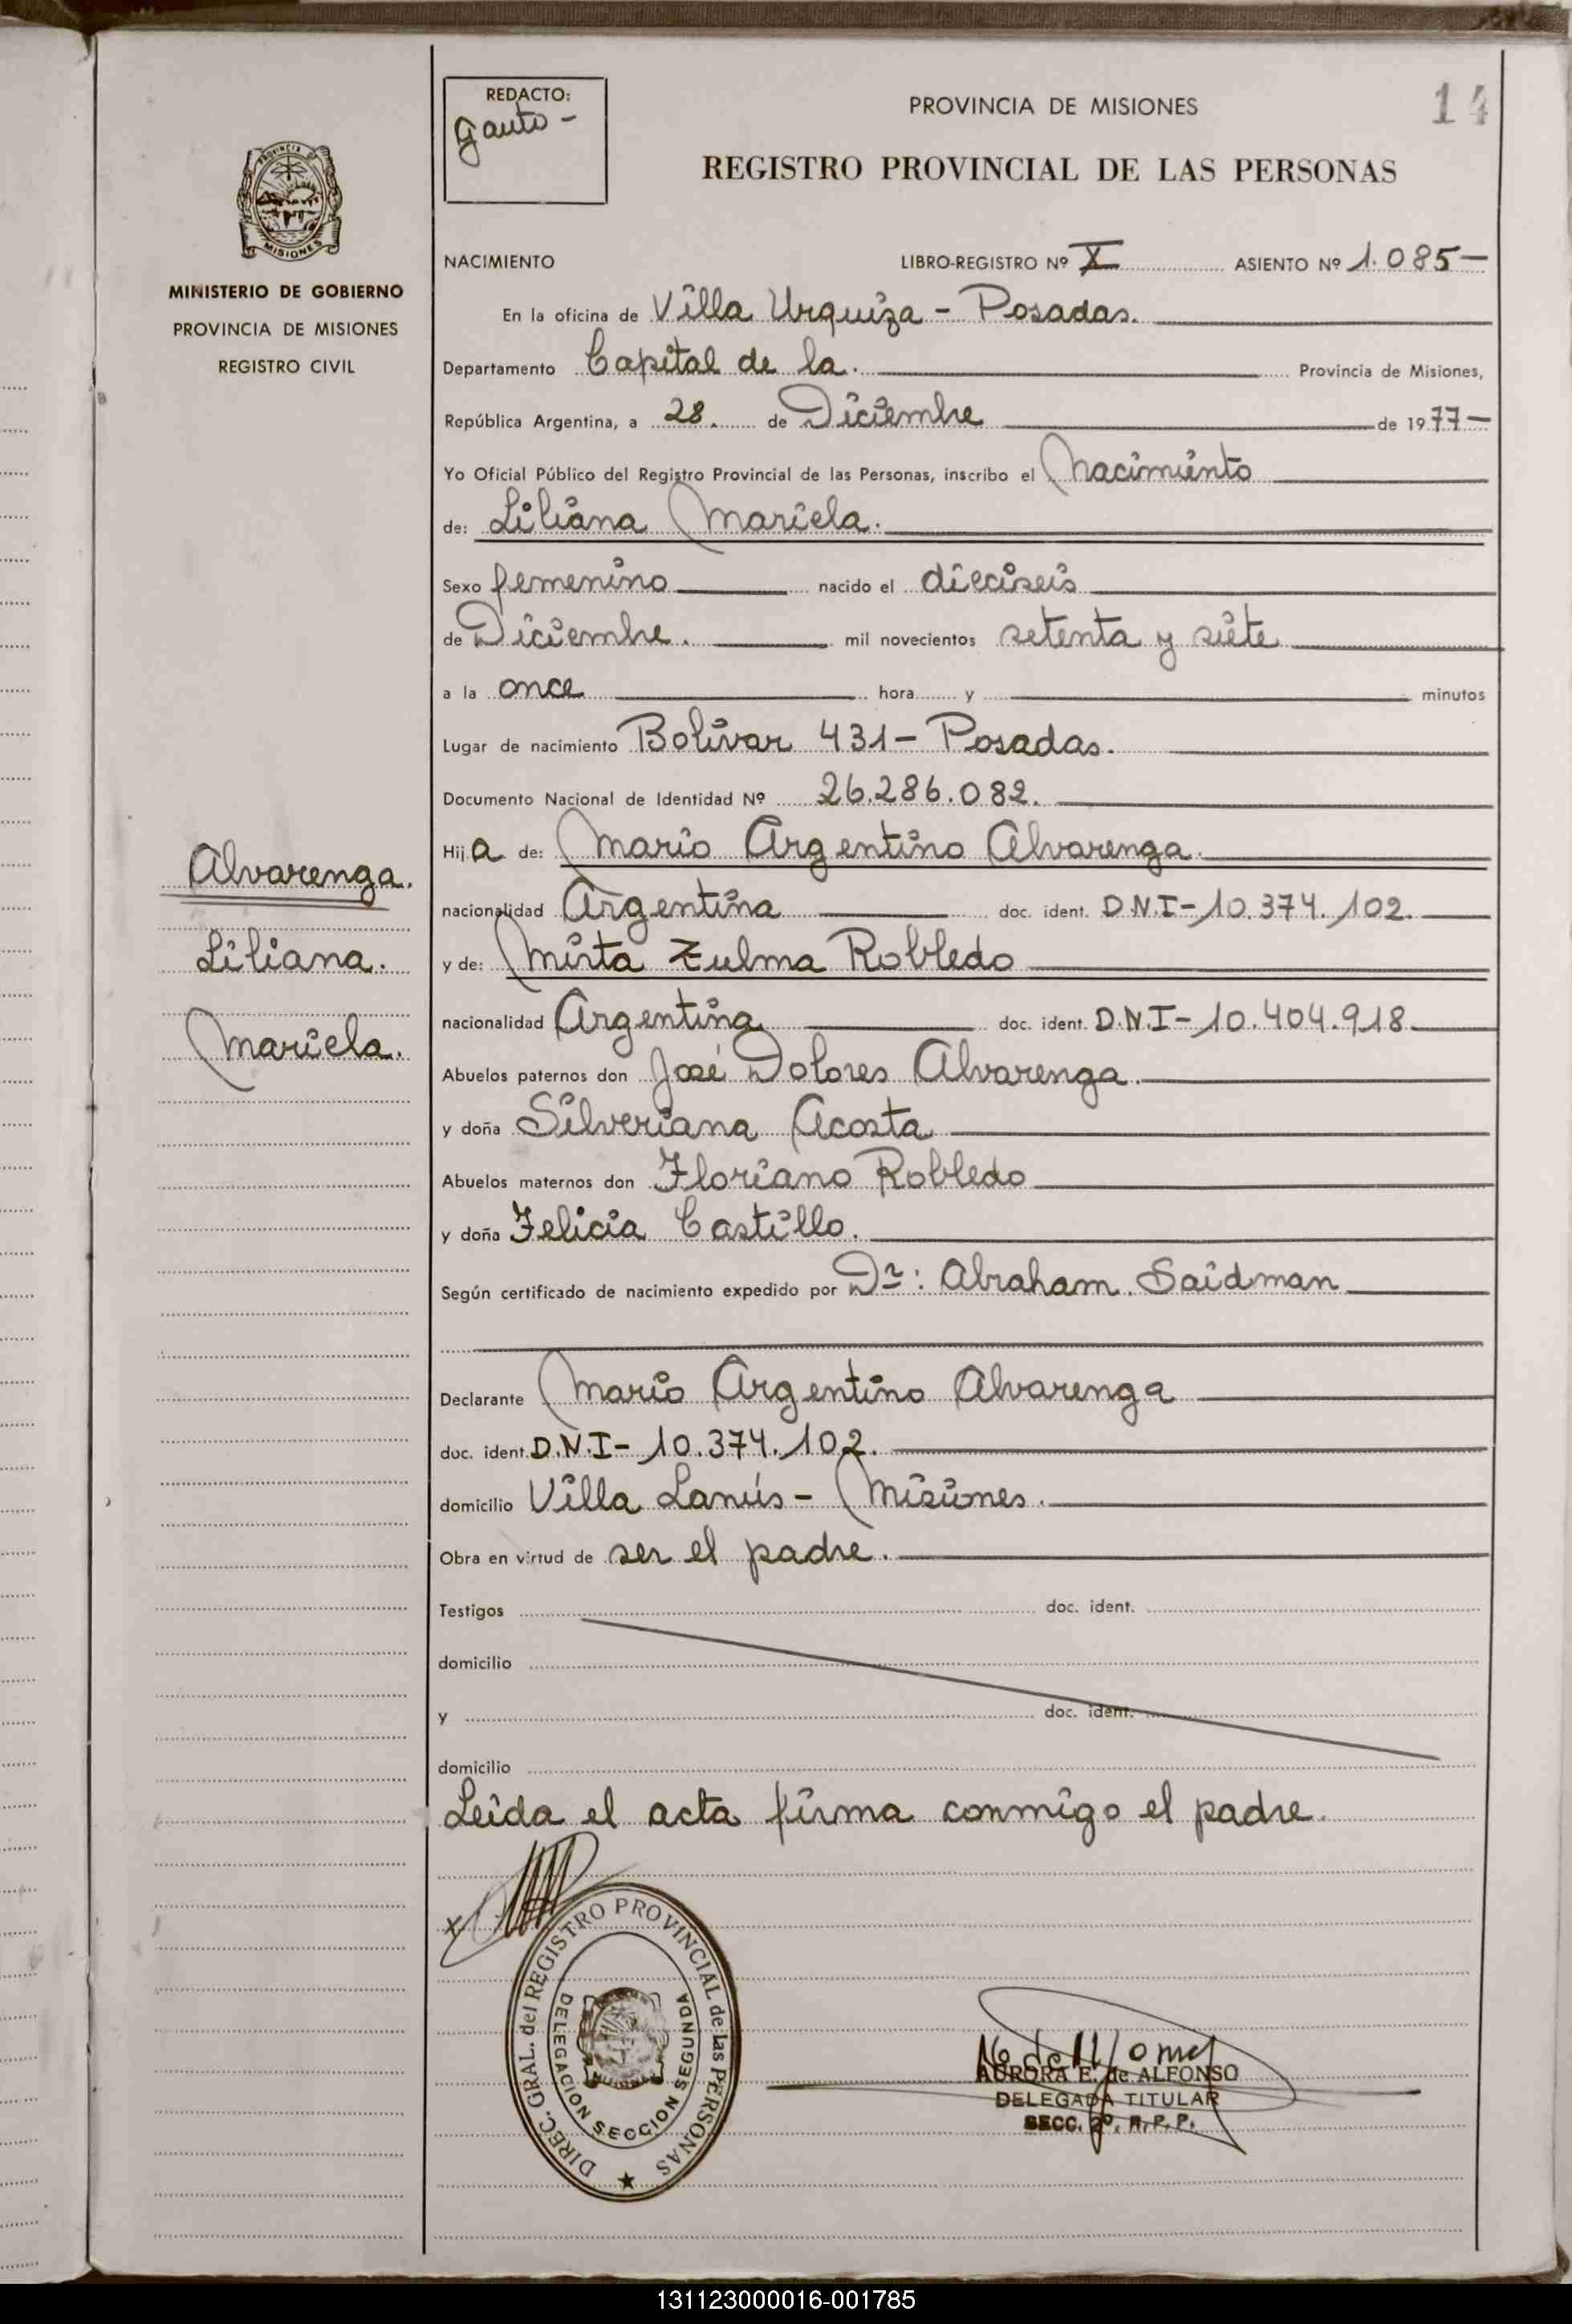 14
REDACTO:
Gauto -
PROVINCIA DE MISIONES
REGISTRO PROVINCIAL DE LAS PERSONAS
PROVINCIA DE MISIONES
MINISTERIO DE GOBIERNO
PROVINCIA DE MISIONES
REGISTRO CIVIL
Alvarenga.
Liliana.
Mariela.
NACIMIENTO LIBRO-REGISTRO Nº X ASIENTO Nº 1.085-
En la oficina de Villa Urquiza - Posadas.
Departamento Capital de la. Provincia de Misiones,
República Argentina, a 28. de Diciembre de 1977-
Yo Oficial Público del Registro Provincial de las Personas, inscribo el Nacimiento
de: Liliana Mariela.
Sexo femenino nacido el dieciseis
de Diciembre. mil novecientos setenta y siete
a la once hora y minutos
Lugar de nacimiento Bolívar 431- Posadas.
Documento Nacional de Identidad Nº 26.286.082.
Hija de: Mario Argentino Alvarenga.
nacionalidad Argentina doc. ident. D.N.I- 10.374.102.
y de: Mirta Zulma Robledo
nacionalidad Argentina doc. ident. D.N.I- 10.404.918
Abuelos paternos don José Dolores Alvarenga.
y doña Silveriana Acosta
Abuelos maternos don Floriano Robledo
y doña Felicia Castillo.
Según certificado de nacimiento expedido por Dr: Abraham Saidman
Declarante Mario Argentino Alvarenga
doc. ident. D.N.I- 10.374.102.
domicilio Villa Lanús - Misiones.
Obra en virtud de ser el padre.
Testigos doc. ident.
domicilio
y doc. ident.
domicilio
Leida el acta firma conmigo el padre.
DIREC. GRAL. del REGISTRO PROVINCIAL de las PERSONAS
DELEGACION SECCION SEGUNDA
AURORA E. de ALFONSO
DELEGADA TITULAR
SECC. 2º. R.P.P.
131123000016-001785